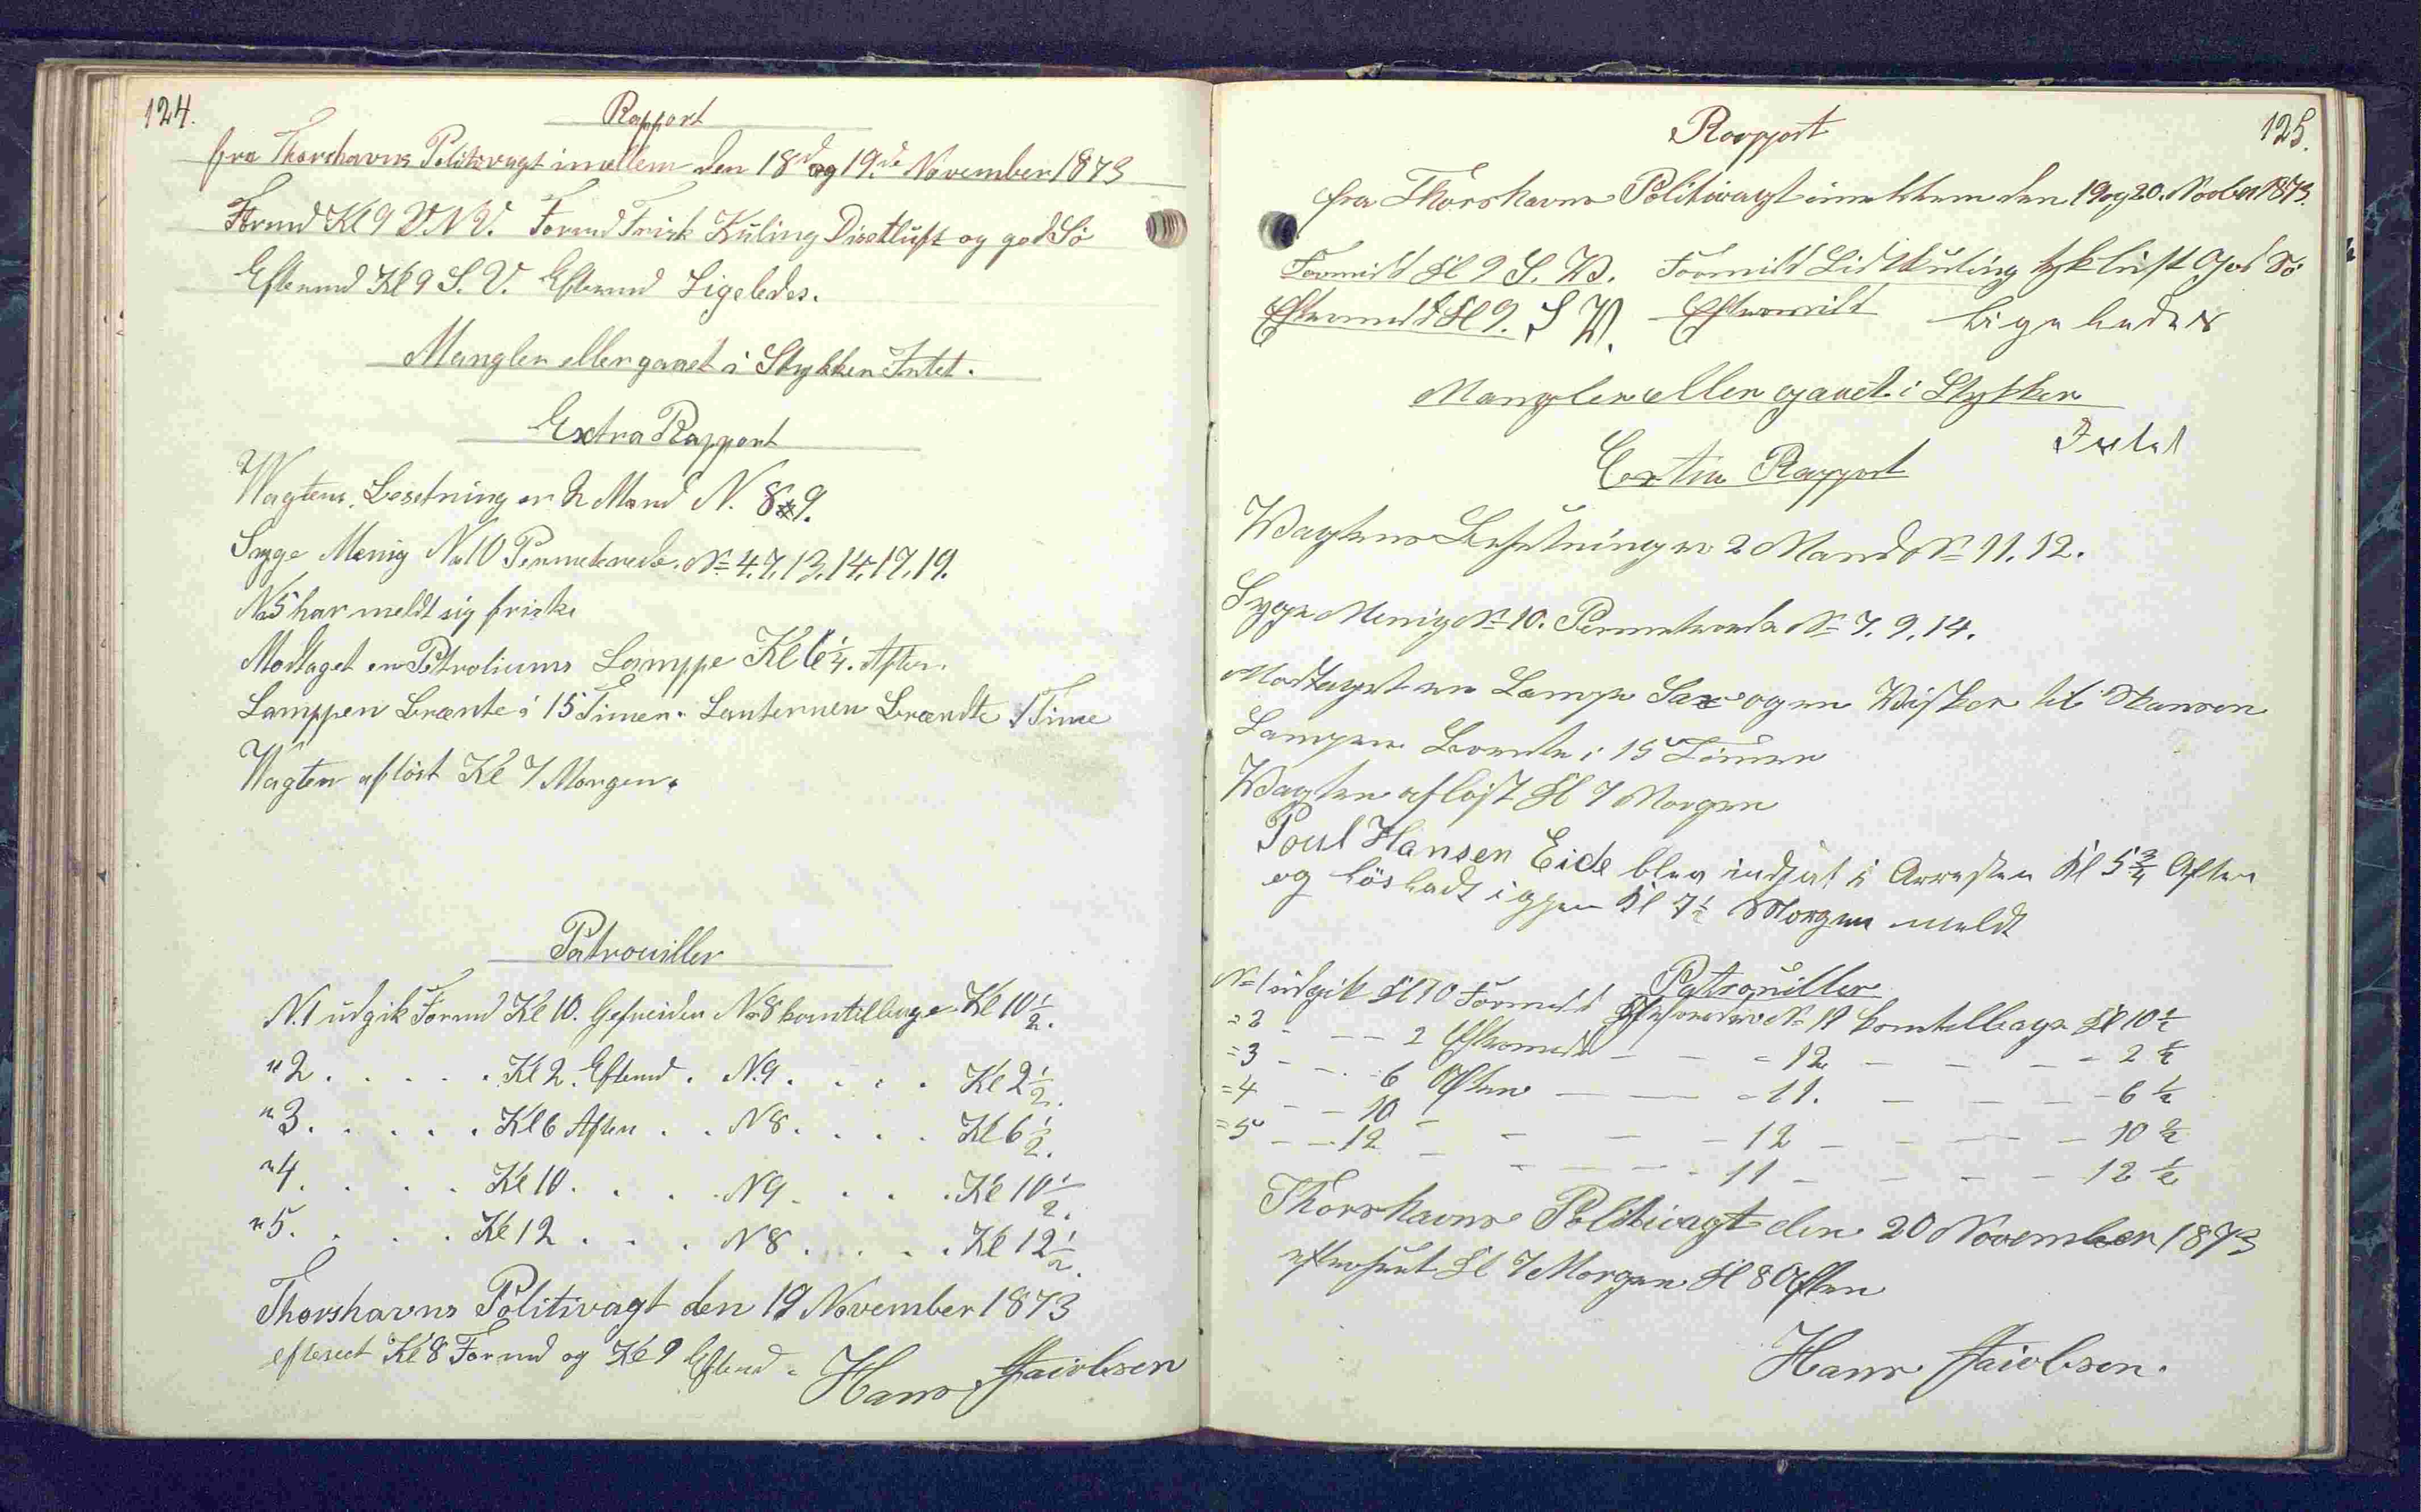 124.
Rapport
fra Thorshavns Politivagt imellem den 18de og 19.de November 1873
Formd Kl 9 V.N.V. Formd Frisk Kuling Disetluft og god Sö
Eftermd Kl 9 S.V. Eftermd Ligeledes.
Mangler eller gaaet i Stykker Intet.
Extra Rapport
Wagtens Besetning er 2 Mand N. 8 & 9.
Syge Menig No 10 Permeterede. No 4.7.13.14.17.19.
No 5 har meldt sig friske
Modtaget en Petroliums Lamppe Kl 6 1/4. Aften.
Lamppen Brænte i 15 Timer. Lanternen Brændte 1 Time
Wagten aflöst Kl 7 Morgen.
Patrouiller
N. 1 udgik Formd Kl 10. Gefreiden No 8 kom tilbage Kl 10 1/2.
" 2 . . . . . Kl 2. Eftermd. N. 9 . . . . Kl 2 1/2.
" 3. . . . . Kl 6 Aften . . N 8 . . . . Kl 6 1/2.
" 4. . . . . Kl 10. . . . N 9 . . . . Kl 10 1/2.
" 5. . . . . Kl 12 . . . N 8 . . . . Kl 12 1/2.
Thorshavns Politivagt den 19 November 1873
efterseet Kl 8 Formd og Kl 9 Eftermd.
Hans Jacobsen
125.
Rapport
fra Thorshavns Politivagt imellem den 19 og 20. Novber 1873.
Formidd Kl 9 S.W. Formidd Lidt Kuling tykluft God Sö
Eftermidd Kl 9. S W. Eftermidd Ligeledes
Mangler eller gaaet i Stykker
Intet
Extra Rapport
Wagtens Besetning er 2 Mand No 11. 12.
Syge Menig No 10. Permeterede No 7. 9. 14.
Modtaget en Lampe Sax og en Wisker til Skansen
Lampen Brente i 15 Timer
Wagten aflöst Kl 7 Morgen
Poul Hansen Eide blev indsat i Arresten Kl 5 3/4 Aften
og lösladt iggen Kl 7 1/2 Morgen meldt
Patrouiller
No 1 udgik Kl 10 Formidd Gefreideren No 12 kom tilbage Kl 10 1/2
= 2 - - - 2 Eftermidd - - - 12 - - - - 2 1/2
= 3 - - - 6 Aften - - - 11. - - - - 6 1/2
= 4 - - 10 - - - - 12 - - - - 10 1/2
= 5 - - 12 - - - - 11 - - - - 12 1/2
Thorshavns Politivagt den 20 November 1873
efterseet Kl 7 Morgen Kl 8 Aften
Hans Jacobsen.